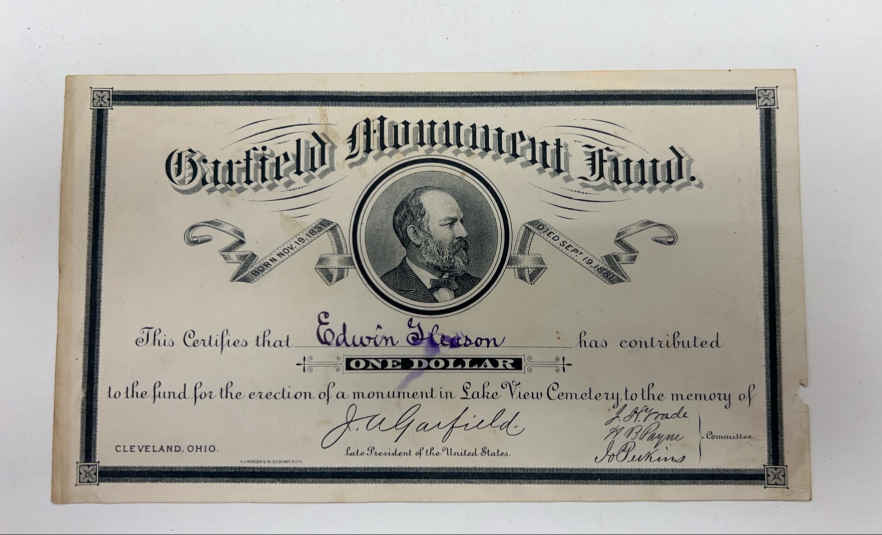 Garfield Monument Fund.
BORN NOV. 19, 1831
DIED SEPT 19, 1881
This Certifies that Edwin Gleason has contributed
ONE DOLLAR
to the fund for the erection of a monument in Lake View Cemetery, to the memory of
J. A. Garfield.
Late President of the United States.
J. H. Wade
H B Payne
Jos Perkins
Committee.
CLEVELAND, OHIO.